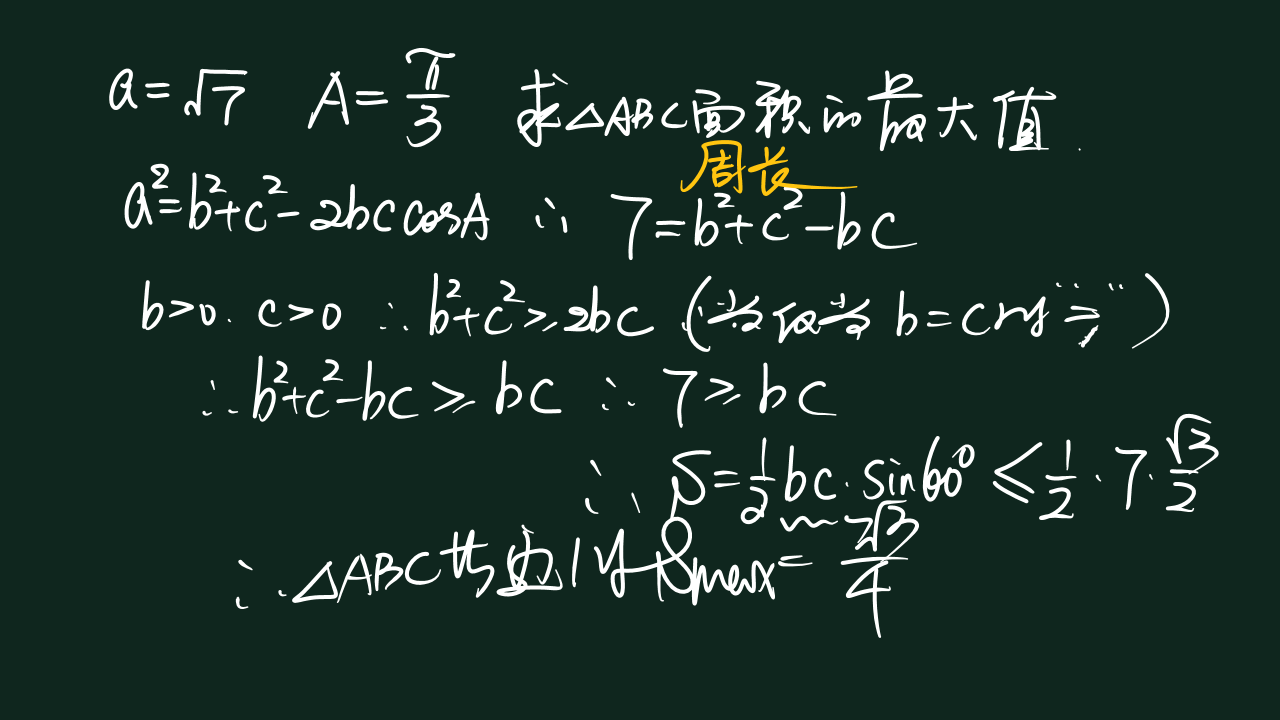 a=√7 A=π/3 求△ABC面积的最大值.
周长
a²=b²+c²-2bccosA ∴ 7=b²+c²-bc
b>0. c>0 ∴b²+c²≥2bc (当仅当 b=c时"=")
∴b²+c²-bc≥bc ∴7≥bc
∴ S=1/2bc·sin60°≤1/2·7·√3/2
∴△ABC为 Smax=7√3/4